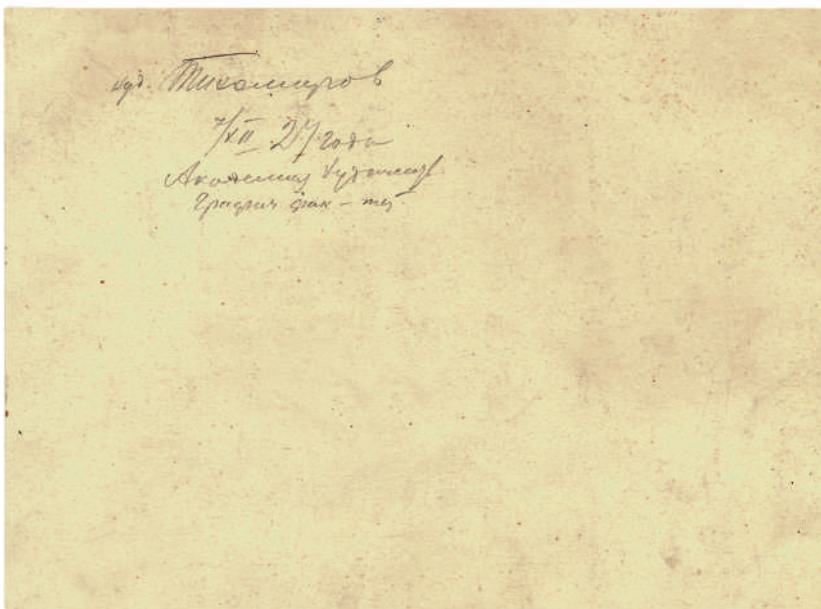 худ. Тихомиров
7/XII 27 года
Академия Художеств
Графич фак-т